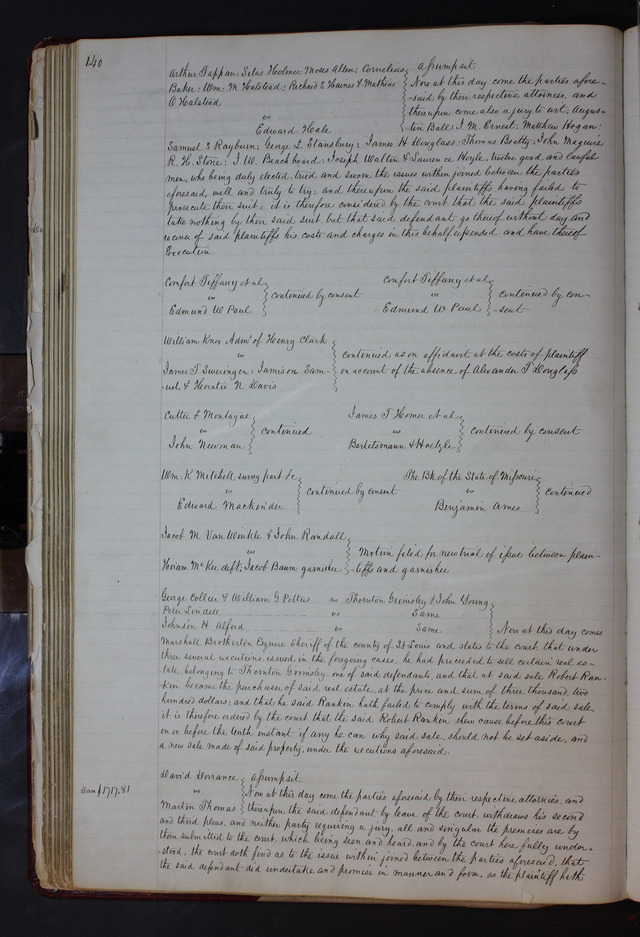 140
Arthur Tappan: Silas Holmes: Moses Allen: Cornelius
Baker: Wm: M Halstead: Richard S Haines & Mathias
O Halstead
vs
Edward Hale
assumpsit
Now at this day come the parties afore-
-said by their respective attornies. and
thereupon come also a jury to wit; Augus-
-tin Ball: J. M. Ernest: Matthew Hogan:
Samuel E Rayburn: George L Stansbury: James H Douglass: Thomas Beatty: John Maguire
R. H. Stone: J. W. Beachboard: Joseph Walton & Lawrence Hoyle, twelve good and lawful
men, who being duly elected, tried and sworn the issues within joined between the parties
aforesaid, well and truly to try; and thereupon the said plaintiffs having failed to
prosecute their suit; it is therefore considered by the court that the said plaintiffs
take nothing by their said suit but that said defendant go thereof without day and
recover of said plaintiffs his costs and charges in this behalf expended and have thereof
Execution.
Comfort Tiffany et al
vs
Edmund W Paul
continued by consent
Comfort Tiffany et al
vs
Edmund W Paul
continued by con-
-sent
William Knox Admr of Henry Clark
vs
James T Sweringen: Jamison Sam-
uel & Horatio N Davis
continued as on affidavit at the costs of plaintiff
on account of the absence of Alexander T Douglass
Cutter & Montague
vs
John Newman
continued
James T Homer et al
vs
Bartetsmann & Hoelzle
continued by consent
Wm: K Mitchell survg part &c
vs
Edward Mackinder
continued by consent
The Bk of the State of Missouri
vs
Benjamin Ames
continued
Jacob M Van Winkle & John Randall
vs
Hiriam McKee deft; Jacob Baum garnishee
Motion filed for new trial of issue between plain-
-tiffs and garnishee
George Collier & William G Pettus vs Thornton Grimsley & John Young
Peter Lindell vs Same
Johnson H Alford vs Same
Now at this day comes
Marshall Brotherton Esquire Sheriff of the county of St Louis and states to the court, that under
three several executions, issued in the foregoing cases, he had proceeded to sell certain real es-
-tate belonging to Thornton Grimsley, one of said defendants, and that at said sale Robert Ran-
kin became the purchaser of said real estate, at the price and sum of three thousand, two
hundred dollars; and that he said Rankin hath failed to comply with the terms of said sale.
it is therefore ordered by the court that the said Robert Rankin shew cause before this court
on or before the tenth instant if any he can why said sale, should not be set aside, and
a new sale made of said property, under the executions aforesaid.
1717.81
David Dorrance
vs
Martin Thomas
assumpsit
Now at this day come the parties aforesaid by their respective attornies. and
thereupon the said defendant by leave of the court withdraws his second
and third pleas, and neither party requiring a jury, all and singular the premises are by
them submitted to the court, which being seen and heard, and by the court here fully under-
-stood, the court doth find as to the issue within joined between the parties aforesaid, that
the said defendant did undertake and promise in manner and form, as the plaintiff hath